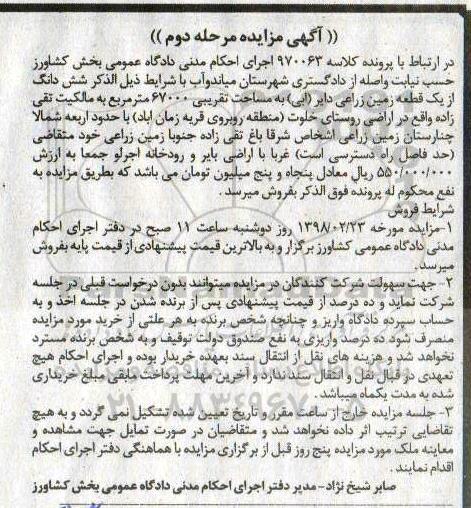 (( آگهی مزایده مرحله دوم ))
در ارتباط با پرونده کلاسه ۹۷۰۰۶۳ اجرای احکام مدنی دادگاه عمومی بخش کشاورز
حسب نیابت واصله از دادگستری شهرستان میاندوآب با شرایط ذیل الذکر شش دانگ
از یک قطعه زمین زراعی دایر (آبی) به مساحت تقریبی ۶۷۰۰۰ مترمربع به مالکیت تقی
زاده واقع در اراضی روستای خلوت (منطقه روبروی قریه زمان اباد) با حدود اربعه شمالا
چنارستان زمین زراعی اشخاص شرقا باغ تقی زاده جنوبا زمین زراعی خود متقاضی
(حد فاصل راه دسترسی است) غربا با اراضی بایر و رودخانه اجرلو جمعا به ارزش
۵۵۰/۰۰۰/۰۰۰ ریال معادل پنجاه و پنج میلیون تومان می باشد که بطریق مزایده به
نفع محکوم له پرونده فوق الذکر بفروش میرسد.
شرایط فروش
۱-مزایده مورخه ۱۳۹۸/۰۲/۲۳ روز دوشنبه ساعت ۱۱ صبح در دفتر اجرای احکام
مدنی دادگاه عمومی کشاورز برگزار و به بالاترین قیمت پیشنهادی از قیمت پایه بفروش
میرسد.
۲- جهت سهولت شرکت کنندگان در مزایده میتوانند بدون درخواست قبلی در جلسه
شرکت نماید و ده درصد از قیمت پیشنهادی پس از برنده شدن در جلسه اخذ و به
حساب سپرده دادگاه واریز و چنانچه شخص برنده به هر علتی از خرید مورد مزایده
منصرف شود ده درصد واریزی به نفع صندوق دولت توقیف و به شخص برنده مسترد
نخواهد شد و هزینه های نقل از انتقال سند بعهده خریدار بوده و اجرای احکام هیچ
تعهدی در قبال نقل و انتقال سند ندارد و آخرین مهلت پرداخت مابقی مبلغ خریداری
شده به مدت یکماه میباشد.
۳- جلسه مزایده خارج از ساعت مقرر و تاریخ تعیین شده تشکیل نمی گردد و به هیچ
تقاضایی ترتیب اثر داده نخواهد شد و متقاضیان در صورت تمایل جهت مشاهده و
معاینه ملک مورد مزایده پنج روز قبل از برگزاری مزایده با هماهنگی دفتر اجرای احکام
اقدام نمایند.
صابر شیخ نژاد-مدیر دفتر اجرای احکام مدنی دادگاه عمومی بخش کشاورز